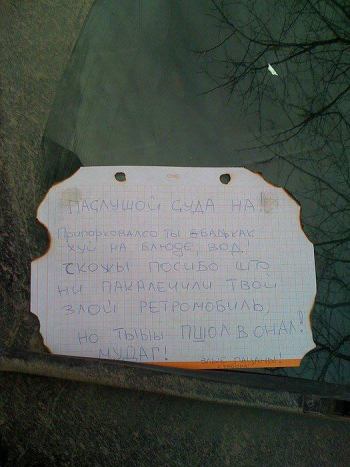 ПАСЛУШОЙ СУДА НА!
ПРИПОРКОВАЛСО ТЫ КАК
ХУЙ НА БЛЮДЕ, ВОД!
СКОЖЫ ПОСИБО ШТО
НИ ПАКАЛЕЧИЛИ ТВОЙ
ЗЛОЙ РЕТРОМОБИЛЬ,
НО ТЫЫЫ ПШОЛ В ОНАЛ!
МУДАГ!
ЗЛЫЕ ПАЦАНЫ!